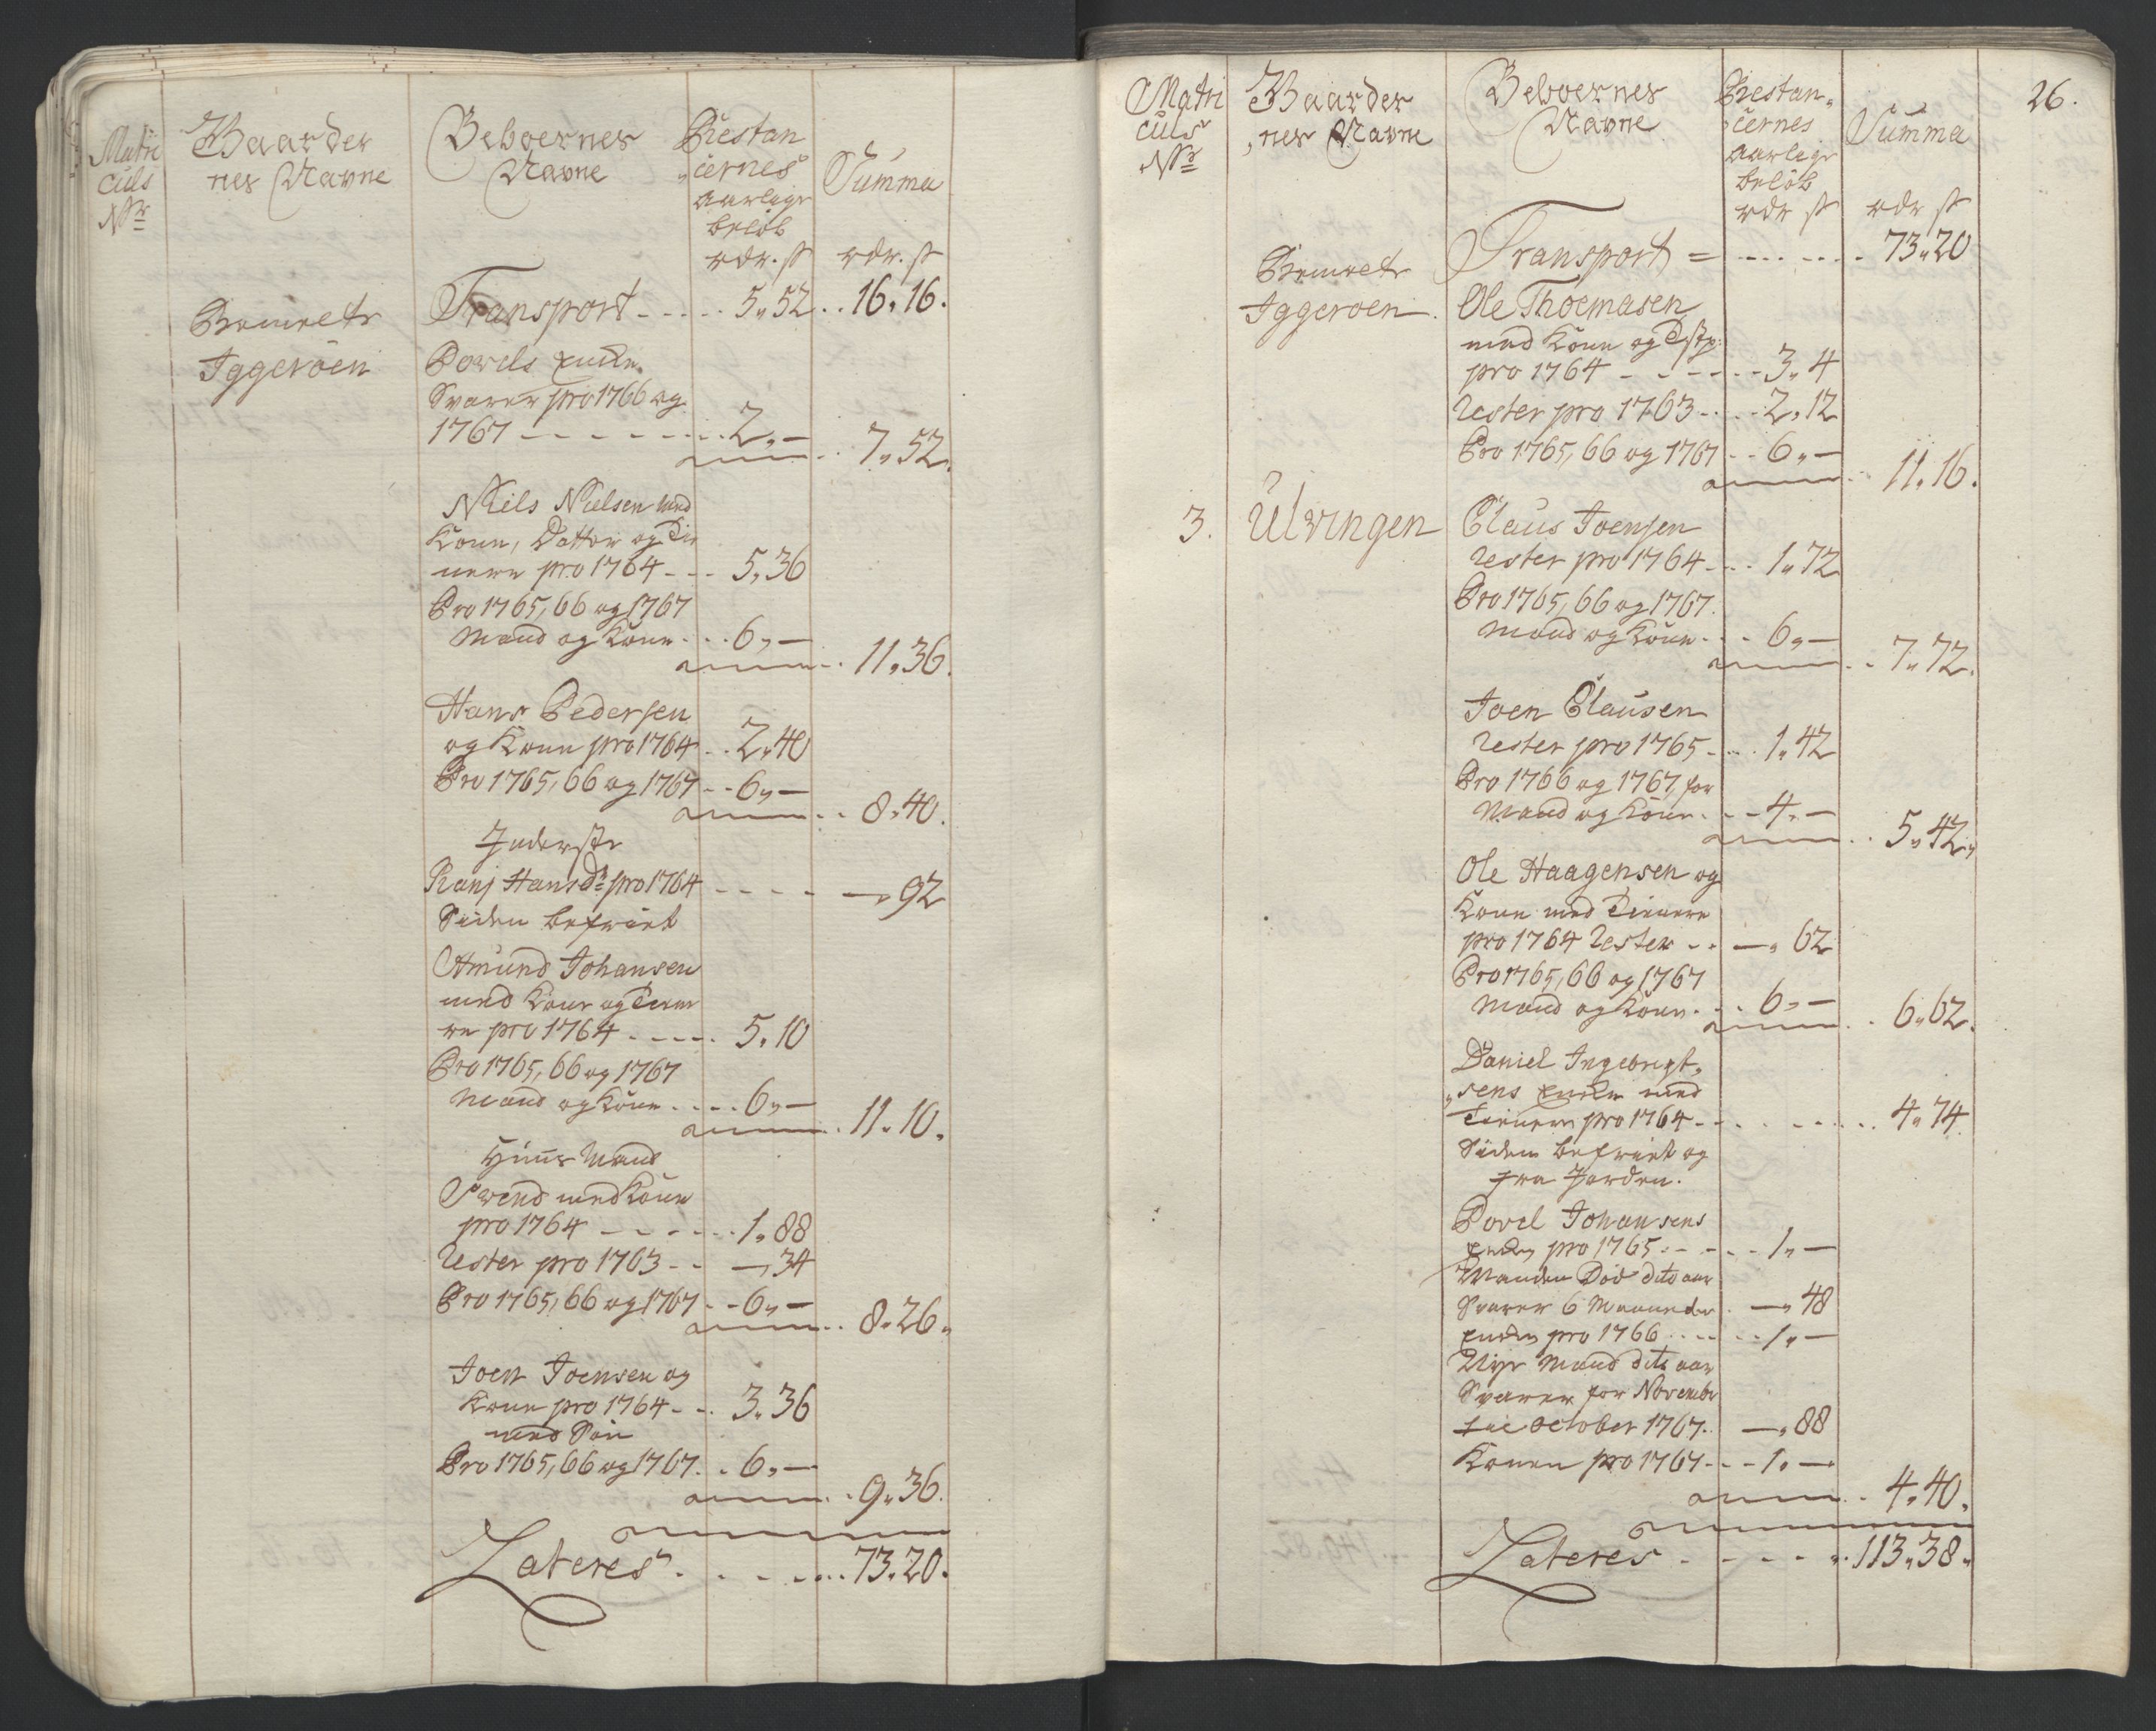 Matri
culs
No
Gaarder
nes Navne
Beboernes
Navne
Restan
cernes
aarlige
beløb
rdr. ß
Summa
rdr. ß
Transport - - - - - 5„52 . . 16„16.
Iggerøen
Povels Enke
Svarer pro 1766 og
1767 - - - - - - - 2„—
7„52.
Niels Nielsen med
Kone, Datter og Tie
nere pro 1764 - - - 5„36
Pro 1765, 66 og 1767
Mand og Kone - - - 6„—
11„36.
Hans Pedersen
og Kone pro 1764 - - 2„40
Pro 1765, 66 og 1767 - - 6„—
8„40.
Inderste
Hans Dr pro 1764 - - - - —„92
Siden befriet
Amund Johansen
med Kone og Tiene
re pro 1764 - - - - - 5„10
Pro 1765, 66 og 1767
Mand og Kone - - - - 6„—
11„10.
Huus Mand
Svend med Kone
pro 1764 - - - - - - 1„88
Rester pro 1763 - - —„34
Pro 1765, 66 og 1767 - - 6„—
8„26„
Joen Joensen og
Kone pro 1764 - - - 3„36
med Søn
Pro 1765, 66 og 1767 - - 6„—
9„36.
Lateres - - - - - - 73„20.
26.
Matri
culs
No
Gaarder
„nes Navne
Beboernes
Navne
Restan„
„cernes
Aarlige
beløb
rdr ß
Summa
rdr ß
Transport = - - - - - - 73„20
Iggerøen.
Ole Thoemasen
med Kone og
pro 1764 - - - - - - 3„4
Rester pro 1763 - - - 2„12
Pro 1765, 66 og 1767 - - 6„—
11„16.
3. Ulvingen Claus Joensen
Rester pro 1764 - - - 1„72
Pro 1765, 66 og 1767.
Mand og Kone - - - 6„—
7„72.
Joen Clausen
Rester pro 1765 - - - 1„42
Pro 1766 og 1767, for
Mand og Kone - - - 4„—
5„42„
Ole Haagensen og
Kone med Tienere
pro 1764 Rester - - —„62
Pro 1765, 66 og 1767
Mand og Kone - - - 6„—
6„62.
Daniel Ingebrigt„
„sens Enke med
Tienere pro 1764 - - - - - - 4„74.
Siden befriet og
fra Jorden.
Povel Johansens
Enke pro 1765 - - - - 1„—
Manden Død dito aar
Svarer 6 Maaneder - —„48
Enken pro 1766 - - - - - 1„—
Nye Mand dito aar
Svarer for November
til October 1767. - —„88
Konen pro 1767 - - - 1„—
4„40„
Lateres - - - - - 113„38„